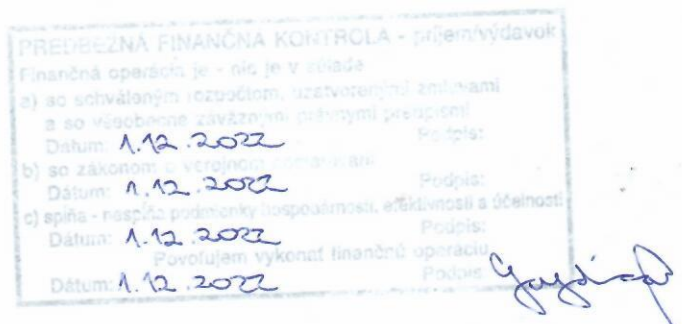 PREDBEŽNÁ FINANČNÁ KONTROLA - príjem/výdavok
Finančná operácia je - nie je v súlade
a) so schváleným rozpočtom, uzatvorenými zmluvami
a so všeobecne záväznými právnymi predpismi
Dátum: 1.12.2022 Podpis:
b) so zákonom o verejnom obstarávaní
Dátum: 1.12.2022 Podpis:
c) spĺňa - nespĺňa podmienky hospodárnosti, efektívnosti a účelnosti
Dátum: 1.12.2022 Podpis:
Povoľujem vykonať finančnú operáciu
Dátum: 1.12.2022 Podpis